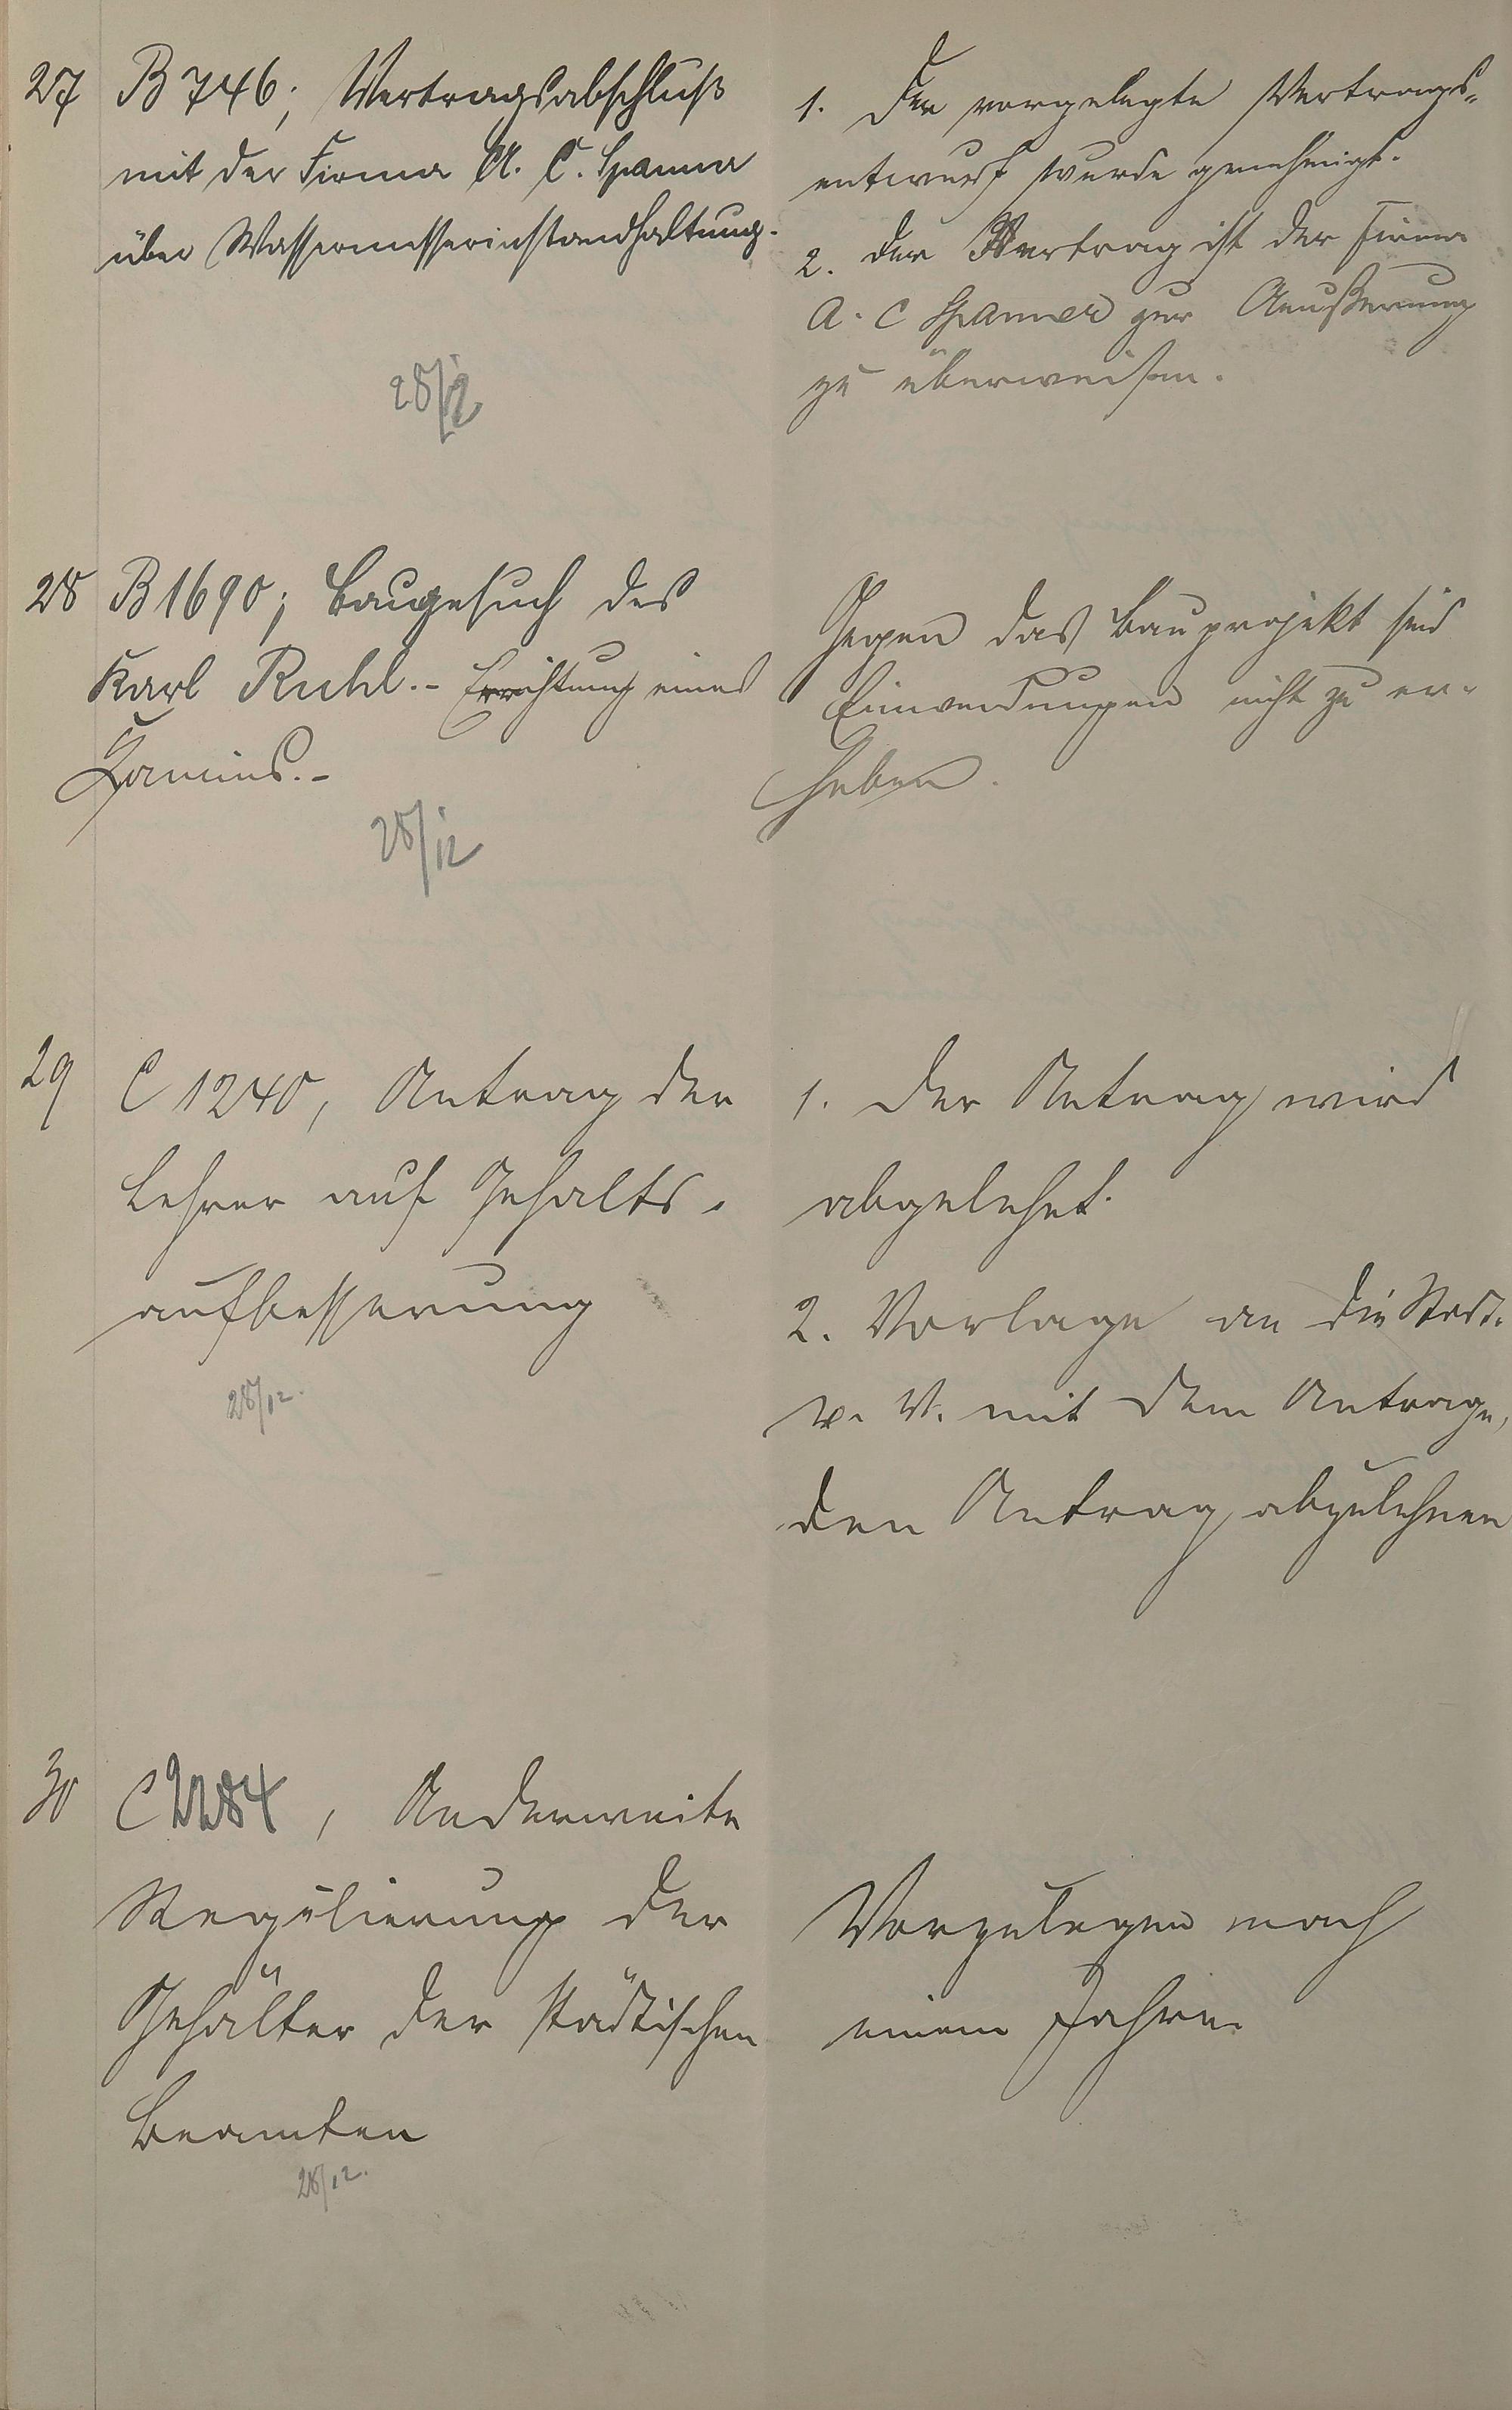 27 B 746; Vertragsabschluß
mit der Firma A. C. Spanner
über Wassermesserinstandhaltung.
28/12
1. Der vorgelegte Vertrags-
entwurf wurde genehmigt.
2. Der Vertrag ist der Firma
A. C Spanner zur Aeußerung
zu überweisen.
28 B 1690; Baugesuch des
Karl Ruhl. - Errichtung eines
Kamins. -
28/12
Gegen das Bauprojekt sind
Einwendungen nicht zu er-
heben.
29 C 1240, Antrag der
Lehrer auf Gehalts-
aufbesserung
28/12.
1. Der Antrag wird
abgelehnt.
2. Vorlage an die Stadt-
v. V. mit dem Antrage,
den Antrag abzulehnen
30 C 2284, Anderweite
Regulierung der
Gehälter der städtischen
Beamten
28/12.
Vorzulegen nach
einem Jahre.